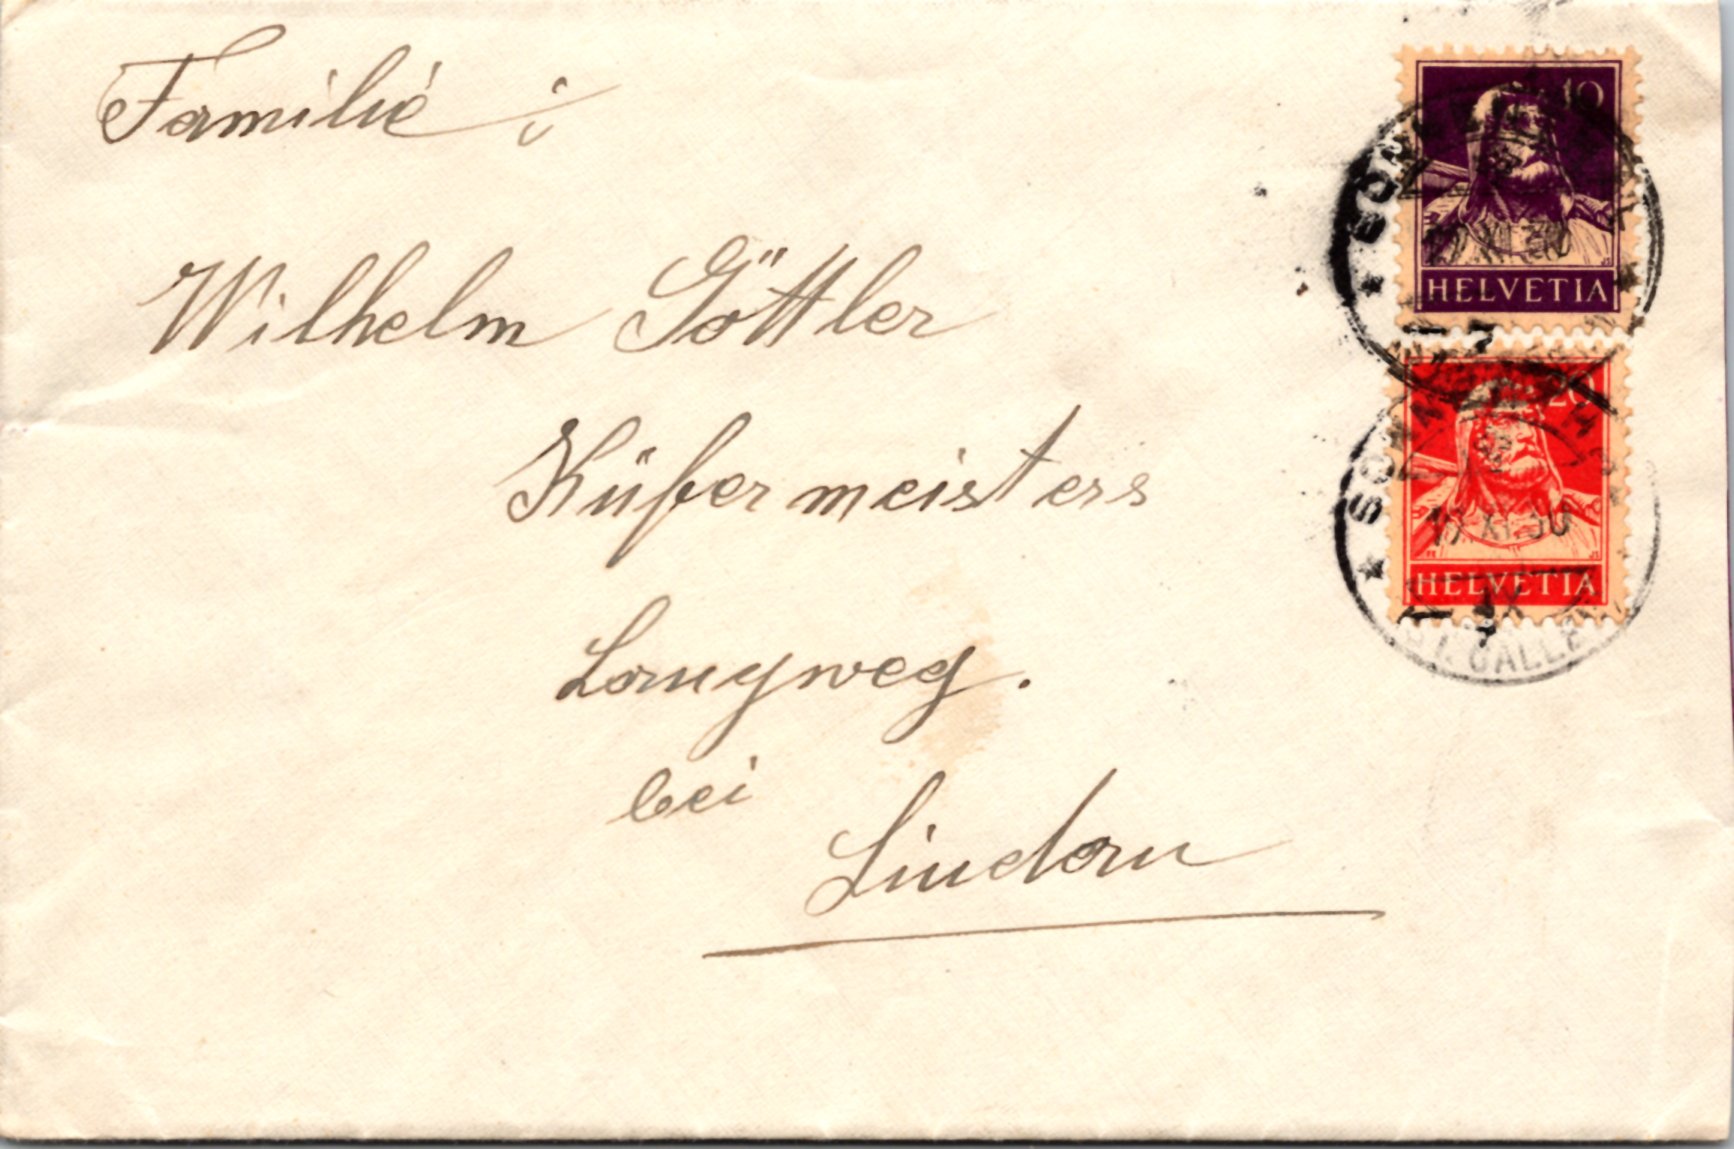 Familie
Wilhelm Göttler
Küfermeisters
Langweg.
bei
Lindau
10
HELVETIA
20
HELVETIA
17.XI.30
ST. GALLEN